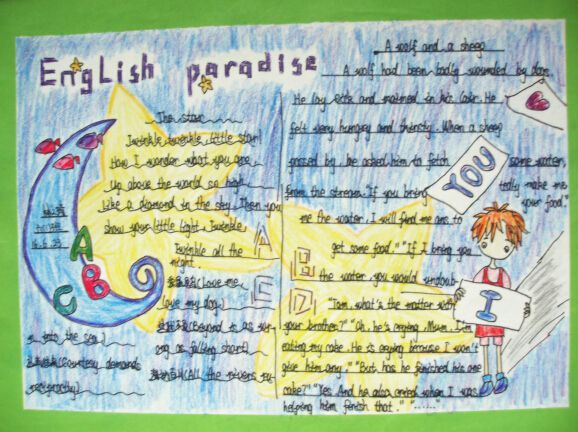 English paradise
The star
Twinkle, twinkle, little star!
How I wonder what you are
Up above the world so high
Like a diamond in the sky. Then you
show your little light, Twinkle,
Twinkle all the
night
(Love me,
love my dog)
(Bound is as
as falling short)
(All the rivers
into the sea)
(Courtesy demands
reciprocity)
A
B
C
A
B
C
D
A wolf and a sheep
A wolf had been badly wounded by dogs.
He lay sick and maimed in his lair. He
felt very hungry and thirsty. When a sheep
passed by, he asked him to fetch some water
from the stream. "If you bring
me the water, I will find me
get some food." "If I bring you
the water, you would undoub-
tedly make me
your food."
YOU
I
"Tom, what's the matter with
your brother?" "Oh, he's crying, Mum. I'm
eating my cake. He is crying because I won't
give him any." "But has he finished his own
cake?" "Yes. And he also cried when I was
helping him finish that." "……"